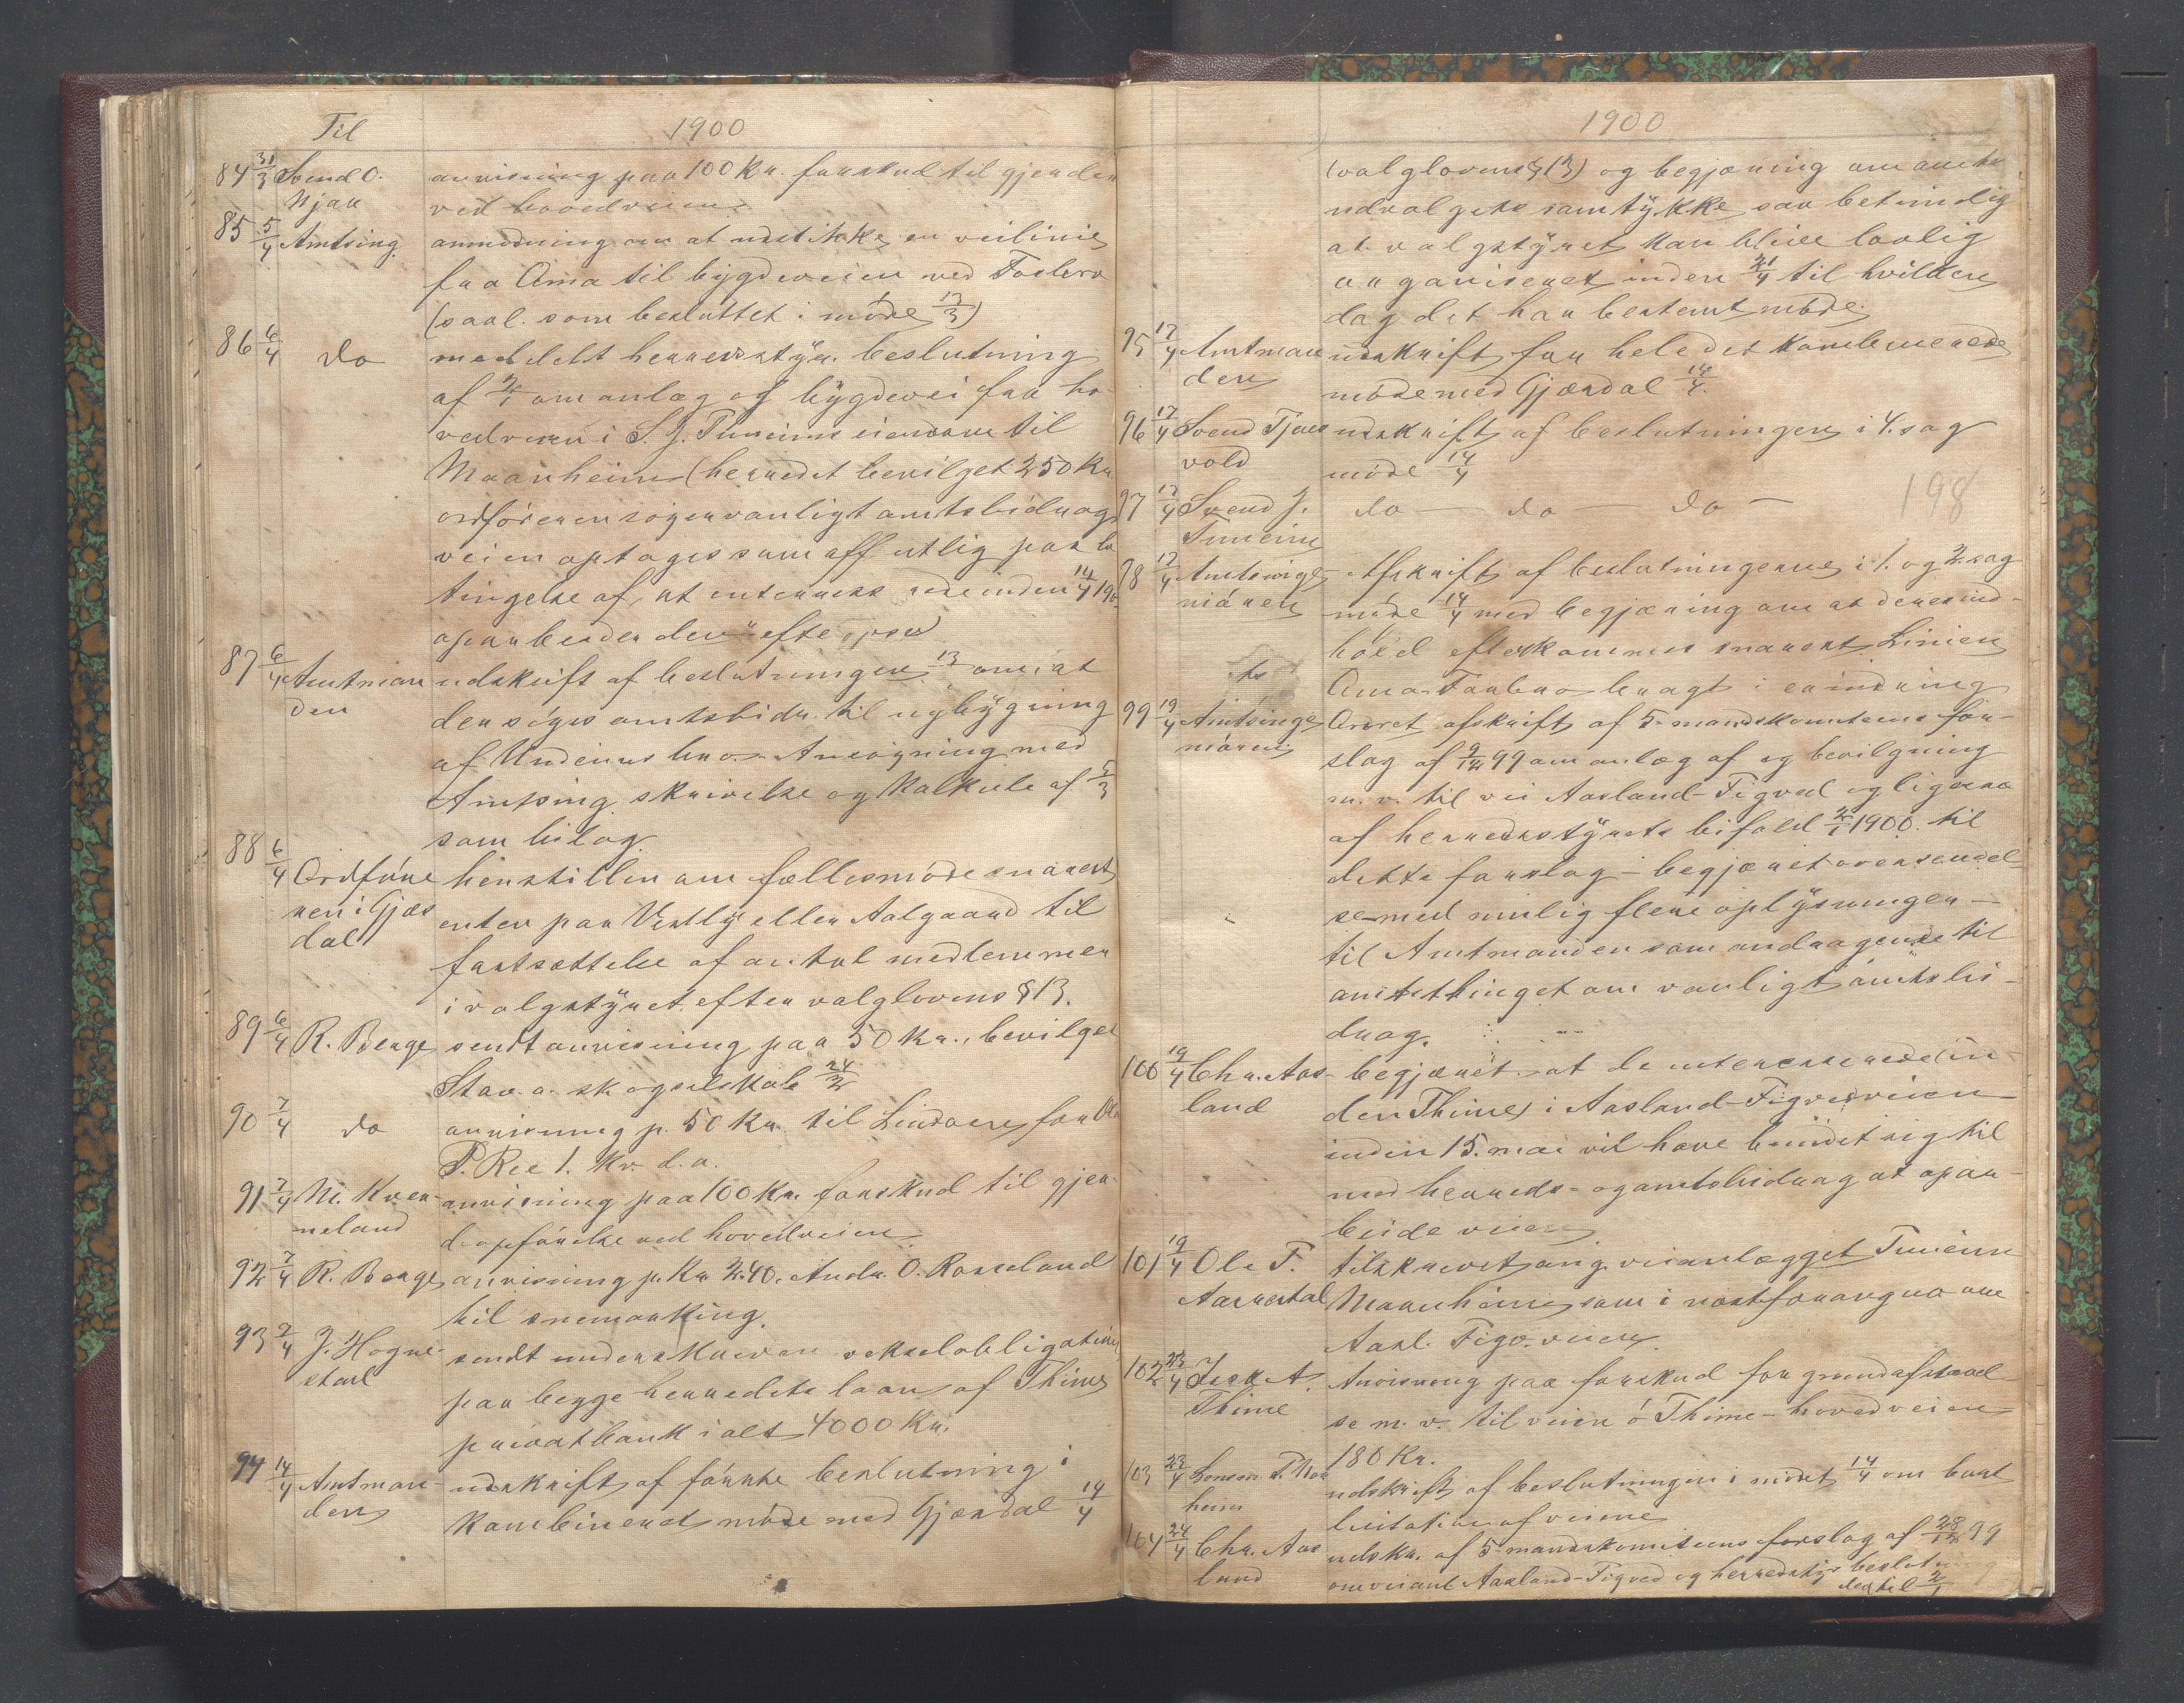 Til 1900
84 31/3 Svend O. anvisning paa 100 Kr. forskud til gjerder
Njaa ved hovedveien.
85 5/4 Amtsing. anmodning om at udstikke en veilinie
fra Ama til bygdeveien ved
(saal. som besluttet i møde 17/3)
86 6/4 do meddelt herredsstyr. beslutning
af 2/1 om anlæg af bygdevei fra ho-
vedveien i S. J. Tuneims eiendom til
Maanheim (herredet bevilget 250 Kr.
ordføreren søger vanligt amtsbidrag
veien optages som offentlig paa be
tingelse af, at inden 14/4 190
oparbeider den efter
87 6/4 Amtman udskrift af beslutningen 13 om, at
den der søges amtsbidr. til nybygning
af Undeims bro. Ansøgning med
Amtsing skrivelse og kalkule af 5/3
som bilag.
88 6/4 Ordføre henstiller om fællesmøde snarest
ren i Gjes enten paa Vestly eller Aalgaard til
dal fastsættelse af antal medlemmer
i valgstyret efter valglovens § 13.
89 6/4 R. Berge sendt anvisning paa 50 Kr., bevilget
Stav. a. skogselskab 24/2
90 7/4 do anvisning p. 50 Kr. til Lindaas for
P. Ree 1. kv. d. a.
91 7/4 M. Kver- anvisning paa 100 Kr. forskud til gjer-
neland deopførelse ved hovedveien.
92 7/4 R. Berge anvisning p. Kr 2.40. Andr. O. Rosseland
til snemaaking.
93 7/4 J. Hogne- sendt underskreven vekselobligation
stad paa begge herredets laan af Thime
privatbank ialt 4000 Kr.
94 14/4 Amtman- udskrift af første beslutning i
den kombineret møde med Gjesdal 14/4
1900
(valglovens § 13) og begjæring om amts
udvalgets samtykke saa betimelig
at valgstyret kan blive lovlig
organiseret inden 21/4 til hvilken
dag det har bestemt møde.
95 17/4 Amtman udskrift for hele det kombinerede
den møde med Gjesdal 14/4.
96 17/4 Svend Tjaes udskrift af beslutningen i 4. sag
vold møde 14/4
97 17/4 Svend J. do — do — do — 198
Tuneim
98 17/4 Amtsinge- Afskrift af beslutningerne i 1. og 2. sag
niøren møde 14/4 med begjæring om at deres ind-
hold efterkommes snarest. Linien
Ama bragt i erindring
99 19/4 Amtsinge Oversendt afskrift af 5-mandskomiteens for-
niøren slag af 9/12 99 om anlæg af og bevilgning
m. v. til vei Aasland-Figved og ligesaa
af herredsstyrets bifald 2/1 1900 til
dette forslag - begjæret oversendel
se med mulig flere oplysninger —
til Amtmanden som andragende til
amtsthinget om vanligt amtsbi-
drag.
100 19/4 Chr. Aas- begjæret at de interesserede in-
land den Thime i Aasland-Figvedveien
inden 15. mai vil have bundet sig til
med herreds- og amtsbidrag at opar-
beide veien
101 19/4 Ole T. tilskrevet ang. veianlægget Tuneim
Aarrestad Maanheim, som i næstforangaa om
Aasl. Figv. veien.
102 23/4 A. Anvisning paa forskud for grundafstaael-
Thime se m. v. til veien ø Thime - hovedveien
180 Kr.
103 23/4 Lensm. udskrift af beslutningen i mødet 14/4 om
heim licitation af veiene
104 24/4 Chr. Aas udskr. af 5 mandskomiteens forslag af 28/12 99
land om veianl Aasland-Figved og herredsstyr beslutning
dertil 2/1